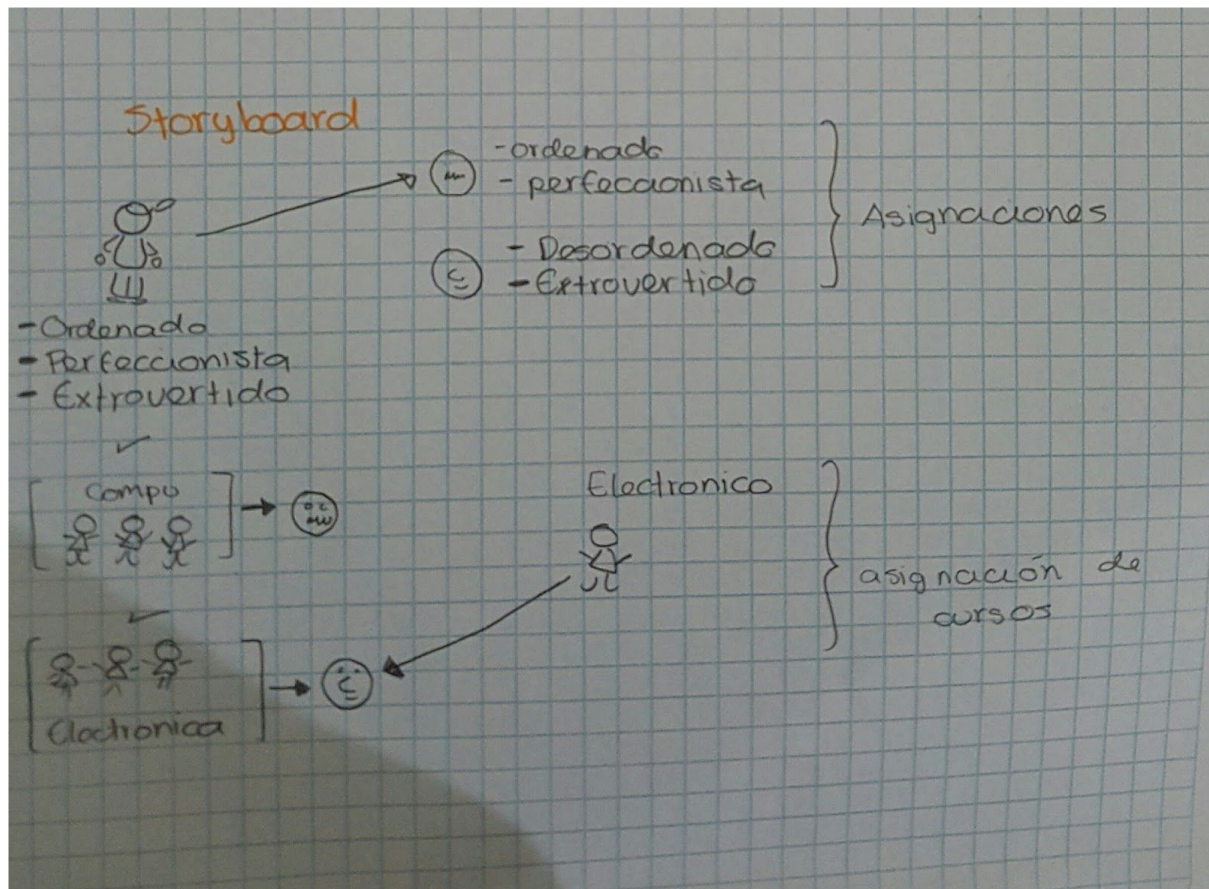 Storyboard
-ordenado
- perfeccionista
- Desordenado
- Extrovertido
Asignaciones
- Ordenado
- Perfeccionista
- Extrovertido
Compo
Electronico
asignación de
cursos
Electronica